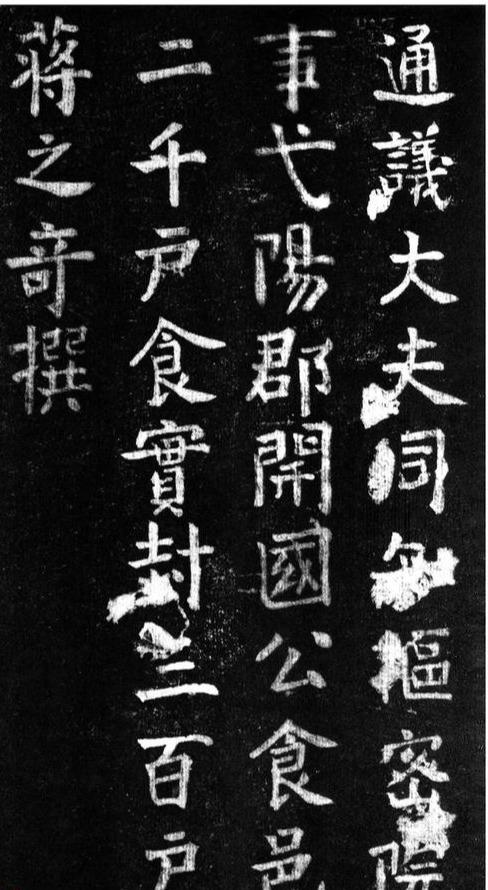 通議大夫同知樞密院
事弋陽郡開國公食邑
二千戶食實封三百戶
蔣之奇撰